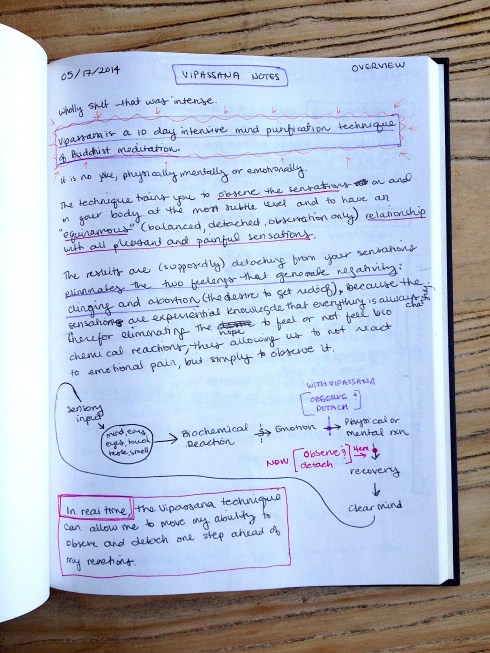 05/17/2014
VIPASSANA NOTES
OVERVIEW
Wholly shit - that was intense.
Vipassana is a 10 day intensive mind purification technique
of Buddhist meditation.
it is no joke, physically mentally or emotionally.
The technique trains you to observe the sensations on and
in your body at the most subtle level and to have an
"equinamous" (balanced, detached, observation only) relationship
with all pleasant and painful sensations.
The results are (supposedly) detaching from your sensations
eliminates the two feelings that generate negativity:
clinging and abortion (the desire to get rid of), because the
sensations are experiential knowledge that everything is always
Therefor eliminating the hope to feel or not feel bio
chemical reactions, thus allowing us to not react
to emotional pain, but simply to observe it.
WITH VIPASSANA
[OBSERVE +
DETACH]
sensory
input
mind, ears
eyes, touch
taste, smell
Biochemical
Reaction
Emotion
Physical or
mental rxn
NOW
[Observe &
detach]
Here
recovery
clear mind
In real time, the Vipassana technique
can allow me to move my ability to
observe and detach one step ahead of
my reactions.